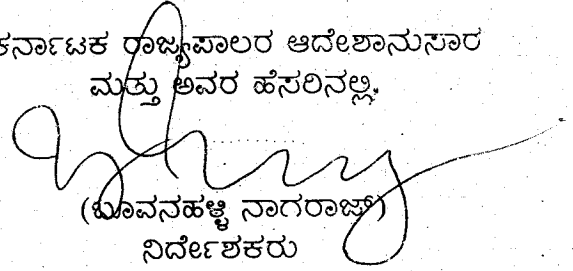 ಕರ್ನಾಟಕ ರಾಜ್ಯಪಾಲರ ಆದೇಶಾನುಸಾರ
ಮತ್ತು ಅವರ ಹೆಸರಿನಲ್ಲಿ,
(ಬೂವನಹಳ್ಳಿ ನಾಗರಾಜ್)
ನಿರ್ದೇಶಕರು